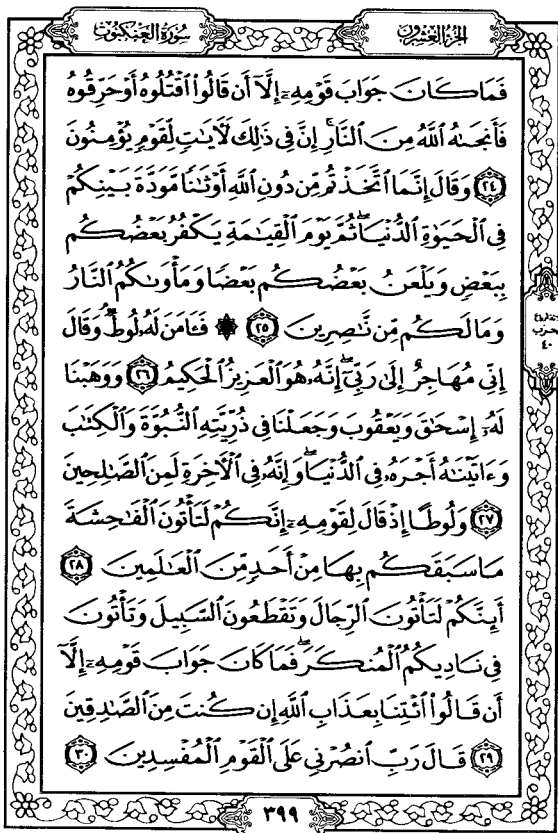 الجزء العشرون
سورة العنكبوت
فَمَا كَانَ جَوَابَ قَوْمِهِۦٓ إِلَّآ أَن قَالُوا۟ ٱقْتُلُوهُ أَوْ حَرِّقُوهُ
فَأَنجَىٰهُ ٱللَّهُ مِنَ ٱلنَّارِ ۚ إِنَّ فِى ذَٰلِكَ لَـَٔايَـٰتٍ لِّقَوْمٍ يُؤْمِنُونَ
﴿٢٤﴾ وَقَالَ إِنَّمَا ٱتَّخَذْتُم مِّن دُونِ ٱللَّهِ أَوْثَـٰنًا مَّوَدَّةَ بَيْنِكُمْ
فِى ٱلْحَيَوٰةِ ٱلدُّنْيَا ۖ ثُمَّ يَوْمَ ٱلْقِيَـٰمَةِ يَكْفُرُ بَعْضُكُم
بِبَعْضٍ وَيَلْعَنُ بَعْضُكُم بَعْضًا وَمَأْوَىٰكُمُ ٱلنَّارُ
وَمَا لَكُم مِّن نَّـٰصِرِينَ ﴿٢٥﴾ ۞ فَـَٔامَنَ لَهُۥ لُوطٌ ۘ وَقَالَ
إِنِّى مُهَاجِرٌ إِلَىٰ رَبِّىٓ ۖ إِنَّهُۥ هُوَ ٱلْعَزِيزُ ٱلْحَكِيمُ ﴿٢٦﴾ وَوَهَبْنَا
لَهُۥٓ إِسْحَـٰقَ وَيَعْقُوبَ وَجَعَلْنَا فِى ذُرِّيَّتِهِ ٱلنُّبُوَّةَ وَٱلْكِتَـٰبَ
وَءَاتَيْنَـٰهُ أَجْرَهُۥ فِى ٱلدُّنْيَا ۖ وَإِنَّهُۥ فِى ٱلْـَٔاخِرَةِ لَمِنَ ٱلصَّـٰلِحِينَ
﴿٢٧﴾ وَلُوطًا إِذْ قَالَ لِقَوْمِهِۦٓ إِنَّكُمْ لَتَأْتُونَ ٱلْفَـٰحِشَةَ
مَا سَبَقَكُم بِهَا مِنْ أَحَدٍ مِّنَ ٱلْعَـٰلَمِينَ ﴿٢٨﴾
أَئِنَّكُمْ لَتَأْتُونَ ٱلرِّجَالَ وَتَقْطَعُونَ ٱلسَّبِيلَ وَتَأْتُونَ
فِى نَادِيكُمُ ٱلْمُنكَرَ ۖ فَمَا كَانَ جَوَابَ قَوْمِهِۦٓ إِلَّآ
أَن قَالُوا۟ ٱئْتِنَا بِعَذَابِ ٱللَّهِ إِن كُنتَ مِنَ ٱلصَّـٰدِقِينَ
﴿٢٩﴾ قَالَ رَبِّ ٱنصُرْنِى عَلَى ٱلْقَوْمِ ٱلْمُفْسِدِينَ ﴿٣٠﴾
٤٠
٣٩٩